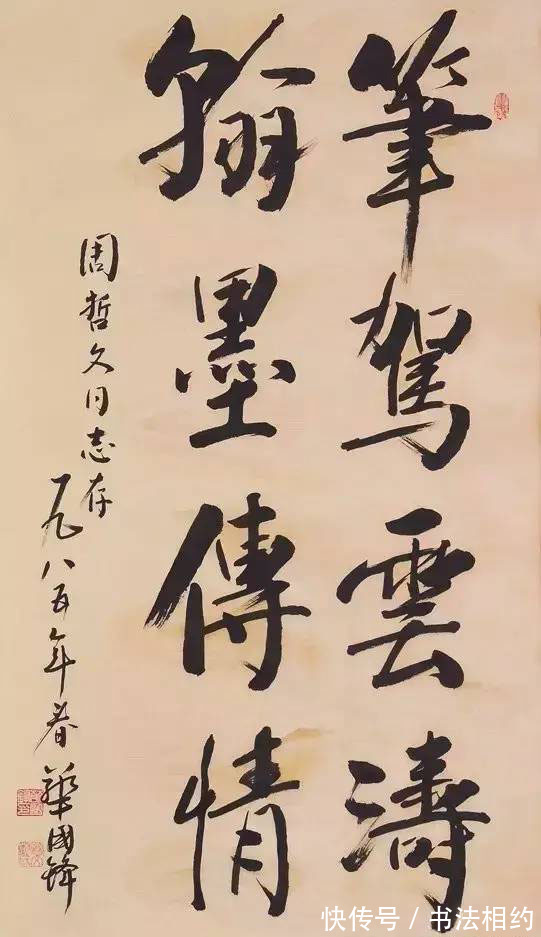 筆駕雲濤
翰墨傳情
周哲文同志存
一九八五年春 華國鋒
快传号 / 书法相约